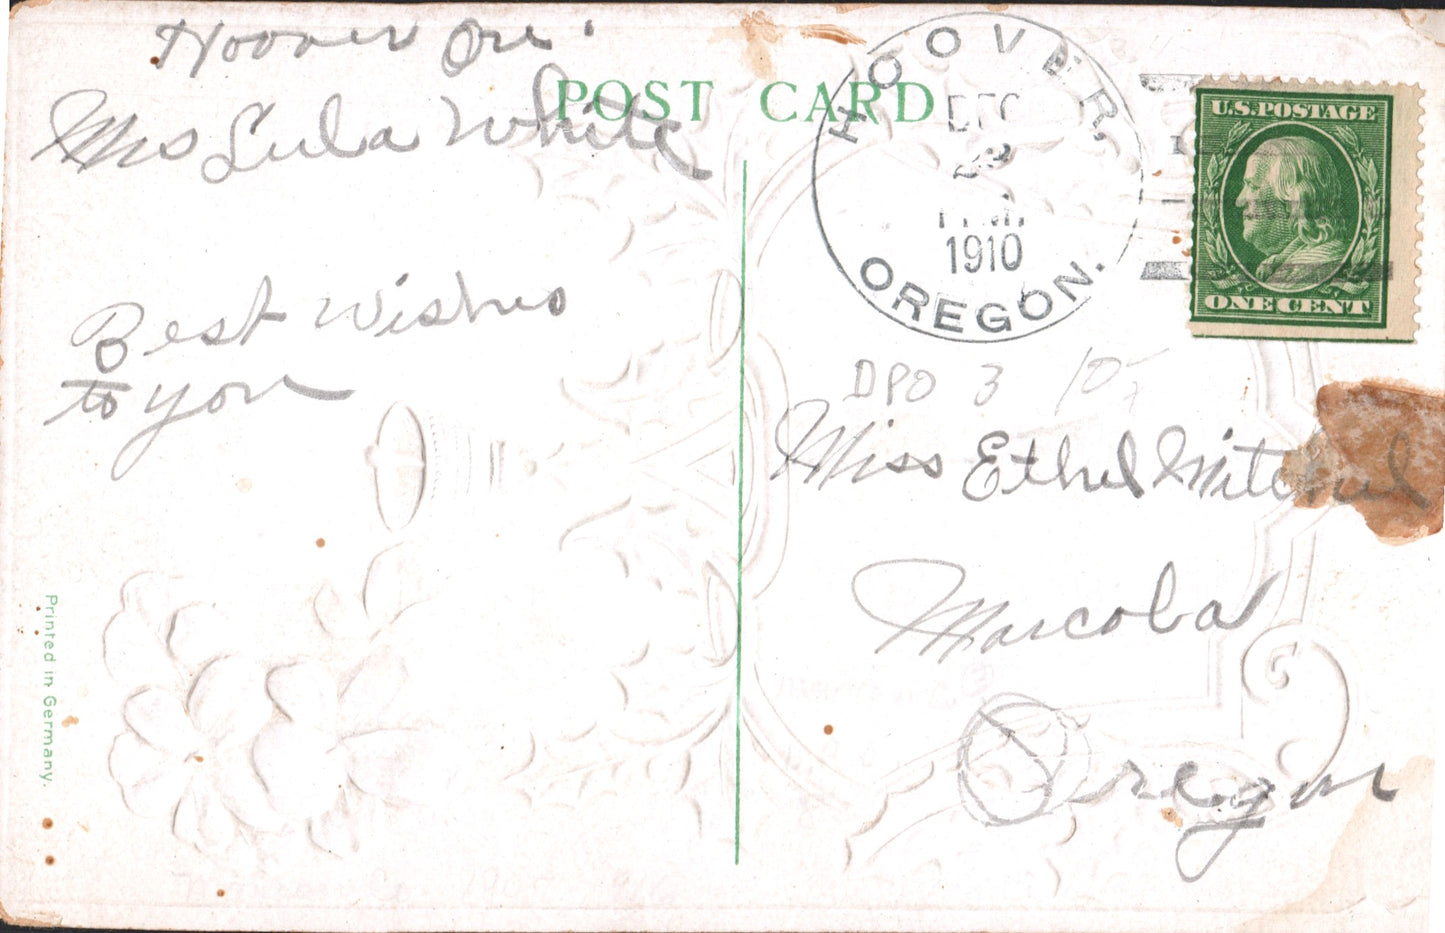 Hoover Ore.
Mrs Lula White
Best Wishes
to you
Printed in Germany.
POST CARD
HOOVER,
DEC
1910
OREGON.
U.S. POSTAGE
ONE CENT
DPO 3
Miss Ethel Mitchel
Marcola
Oregon